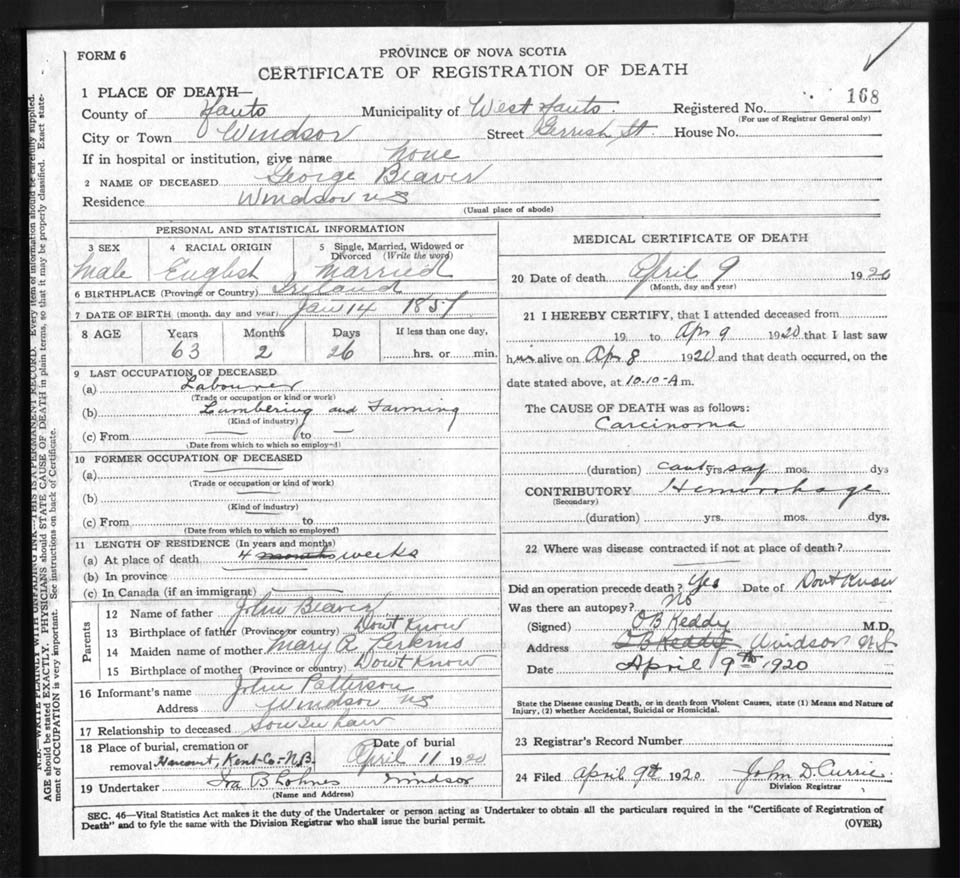 FORM 6
PROVINCE OF NOVA SCOTIA
CERTIFICATE OF REGISTRATION OF DEATH
1 PLACE OF DEATH—
County of Hants Municipality of West Hants Registered No. 168
(For use of Registrar General only)
City or Town Windsor Street Gerrish St House No.
If in hospital or institution, give name none
2 NAME OF DECEASED George Beaver
Residence Windsor NS
(Usual place of abode)
PERSONAL AND STATISTICAL INFORMATION
3 SEX 4 RACIAL ORIGIN 5 Single, Married, Widowed or Divorced (Write the word)
male English Married
6 BIRTHPLACE (Province or Country) Ireland
7 DATE OF BIRTH (month, day and year) Jan 14 1857
8 AGE Years Months Days If less than one day,
63 2 26 hrs. or min.
9 LAST OCCUPATION OF DECEASED
(a) Labourer
(Trade or occupation or kind or work)
(b) Lumbering and Farming
(Kind of industry)
(c) From to —
(Date from which to which so employed)
10 FORMER OCCUPATION OF DECEASED
(a)
(Trade or occupation or kind of work)
(b)
(Kind of industry)
(c) From to
(Date from which to which so employed)
11 LENGTH OF RESIDENCE (In years and months)
(a) At place of death 4 months weeks
(b) In province
(c) In Canada (if an immigrant)
Parents
12 Name of father John Beaver
13 Birthplace of father (Province or country) Dowt Know
14 Maiden name of mother Mary A. Perkins
15 Birthplace of mother (Province or country) Dowt Know
16 Informant's name John Patterson
Address Windsor NS
17 Relationship to deceased Son in Law
18 Place of burial, cremation or removal Harcourt, Kent-Co.-N.B. Date of burial April 11 1920
19 Undertaker Ira B Lohnes Windsor
(Name and Address)
MEDICAL CERTIFICATE OF DEATH
20 Date of death April 9 1920
(Month, day and year)
21 I HEREBY CERTIFY, that I attended deceased from
19 to Apr 9 1920 that I last saw
him alive on Apr 8 1920 and that death occurred, on the
date stated above, at 10.10-A m.
The CAUSE OF DEATH was as follows:
Carcinoma
(duration) cant yrs say mos. dys
CONTRIBUTORY Hemorrhage
(Secondary)
(duration) yrs. mos. dys.
22 Where was disease contracted if not at place of death?
Did an operation precede death? Yes Date of Dont Know
Was there an autopsy? No
(Signed) O B Keddy M.D.
Address O B Keddy Windsor N.S.
Date April 9th 1920
State the Disease causing Death, or in death from Violent Causes, state (1) Means and Nature of
Injury, (2) whether Accidental, Suicidal or Homicidal.
23 Registrar's Record Number
24 Filed April 9th 1920 John D. Currie
Division Registrar
SEC. 46—Vital Statistics Act makes it the duty of the Undertaker or person acting as Undertaker to obtain all the particulars required in the "Certificate of Registration of
Death" and to fyle the same with the Division Registrar who shall issue the burial permit. (OVER)
N.B.—WRITE PLAINLY WITH UNFADING INK—THIS IS A PERMANENT RECORD. Every item of information should be carefully supplied.
AGE should be stated EXACTLY. PHYSICIANS should STATE CAUSE OF DEATH in plain terms, so that it may be properly classified. Exact state-
ment of OCCUPATION is very important. See instructions on back of Certificate.